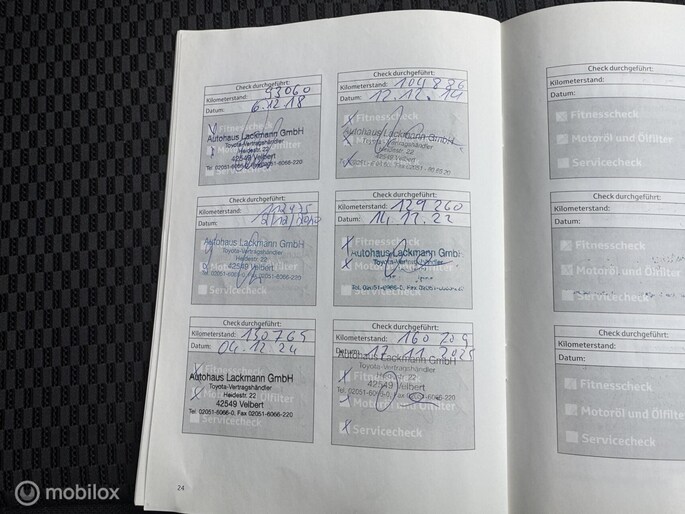 Check durchgeführt:
Kilometerstand: 93060
Datum: 6.12.18
Fitnesscheck
Autohaus Lackmann GmbH
Toyota-Vertragshändler
Heidestr. 22
42549 Velbert
Tel. 02051-6066-0, Fax 02051-6066-220
Servicecheck
Check durchgeführt:
Kilometerstand:
Datum: 12.12.19
Fitnesscheck
Autohaus Lackmann GmbH
Toyota-Vertragshändler
Heidestr. 22
42549 Velbert
Servicecheck
Check durchgeführt:
Kilometerstand:
Datum:
Autohaus Lackmann GmbH
Toyota-Vertragshändler
Heidestr. 22
42549 Velbert
Tel. 02051-6066-0, Fax 02051-6066-220
Servicecheck
Check durchgeführt:
Kilometerstand: 129260
Datum: 14.12.22
Fitnesscheck
Autohaus Lackmann GmbH
Toyota-Vertragshändler
Servicecheck
Check durchgeführt:
Kilometerstand: 150765
Datum: 04.12.24
Fitnesscheck
Autohaus Lackmann GmbH
Toyota-Vertragshändler
Heidestr. 22
42549 Velbert
Tel. 02051-6066-0, Fax 02051-6066-220
Servicecheck
Check durchgeführt:
Kilometerstand: 160 209
Datum: 12.11.2025
Autohaus Lackmann GmbH
Toyota-Vertragshändler
Heidestr. 22
42549 Velbert
Tel. 02051-6066-0, Fax 02051-6066-220
Motoröl und Ölfilter
Servicecheck
24
Check durchgeführt:
Kilometerstand:
Datum:
Fitnesscheck
Motoröl und Ölfilter
Servicecheck
Check durchgeführt:
Kilometerstand:
Datum:
Fitnesscheck
Motoröl und Ölfilter
Servicecheck
Check durchgeführt:
Kilometerstand:
Datum:
Fitnesscheck
Motoröl und Ölfilter
Servicecheck
mobilox